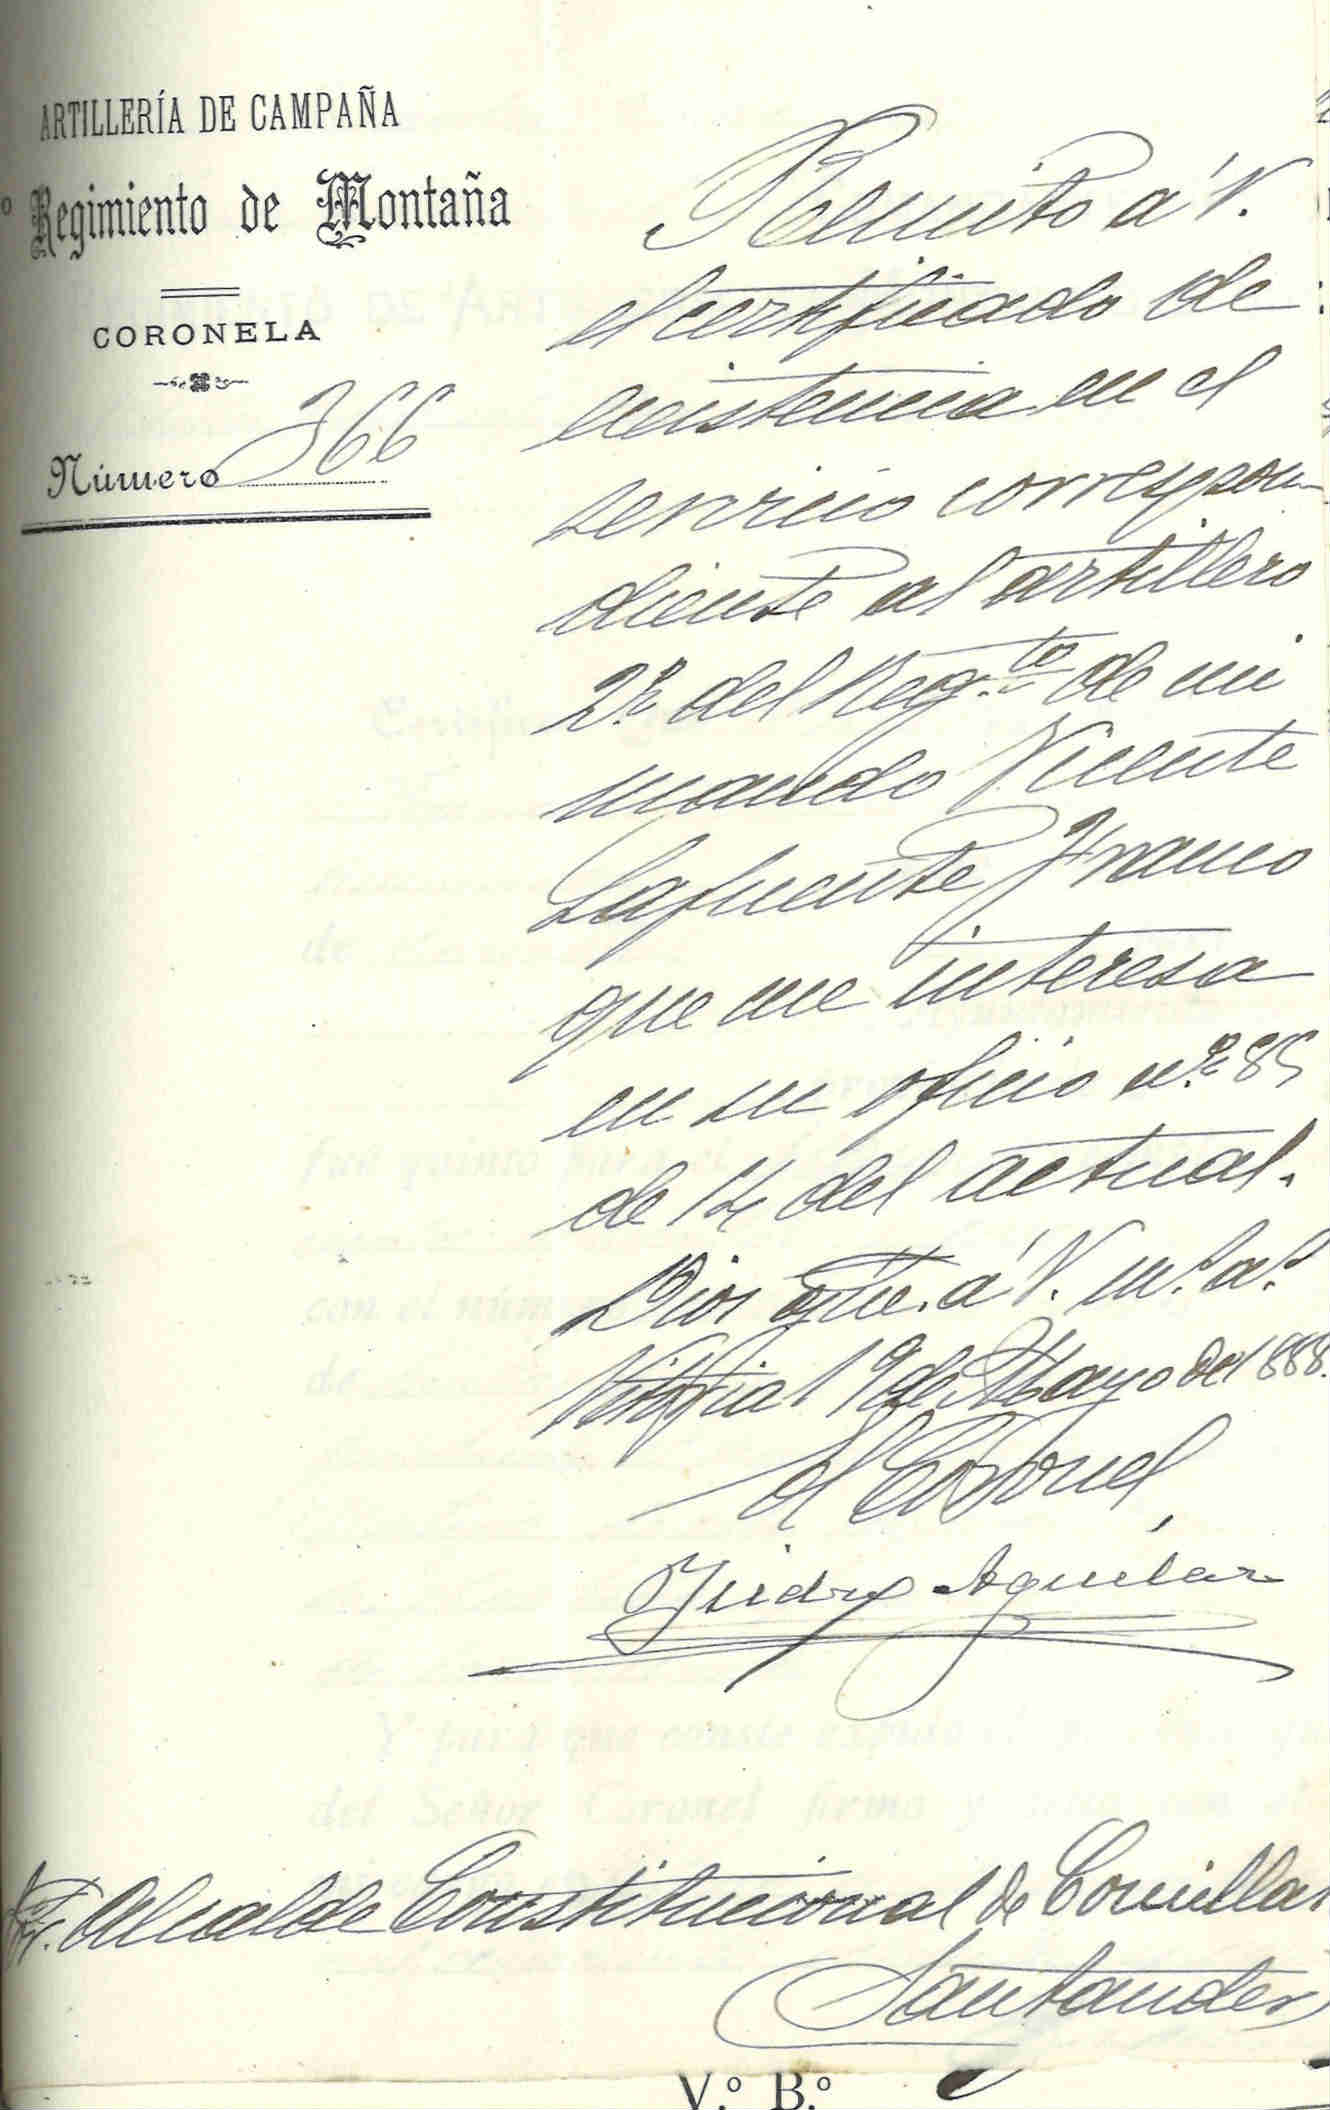 ARTILLERÍA DE CAMPAÑA
º Regimiento de Montaña
CORONELA
Número 366
Remito á V.
el certificado de
existencia en el
servicio correspon-
diente al artillero
2º del Reg.to de mi
mando Vicente
Lafuente Franco
que me interesa
en su oficio nº 85
de 14 del actual.
Dios gue. á V. m.s a.s
Vitoria 19 de Mayo de 1888.
El Coronel,
Aguilar
Sr. Alcalde Constitucional de Comillas
Santander
V.º B.º